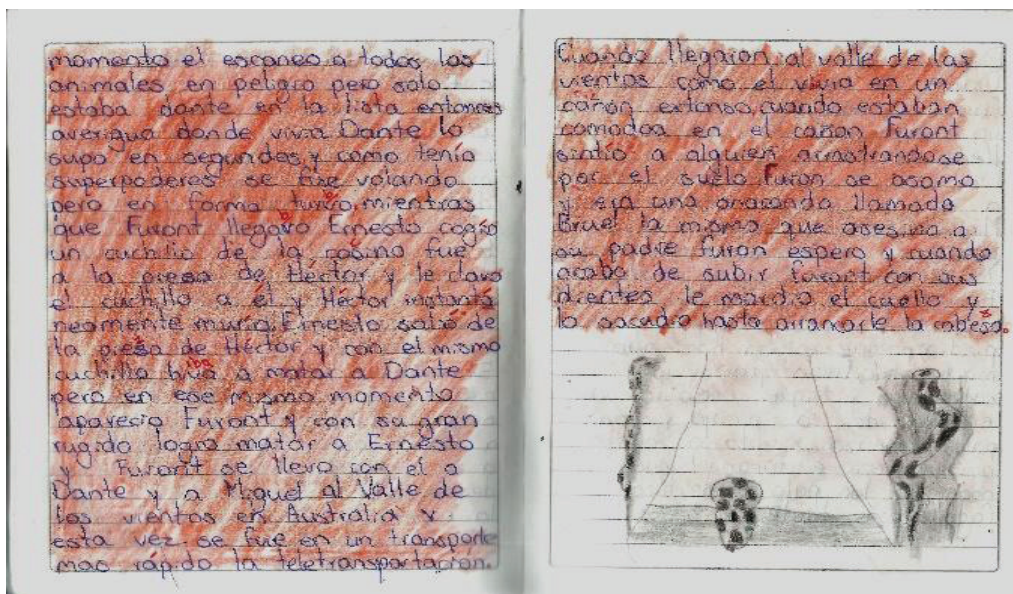 momento el escaneo a todos los
animales en peligro pero solo
estaba dante en la lista entonces
averiguo donde vivia Dante lo
supo en segundos y como tenia
superpoderes se fue volando
pero en forma mientras
que Furont llegava Ernesto cogio
un cuchillo de la cosina fue
a la piesa de Héctor y le clavo
el cuchillo a él y Héctor instanta
neamente murio. Ernesto salio de
la piesa de Héctor y con el mismo
cuchillo iba a matar a Dante
pero en ese mismo momento
aparecio Furont y con su gran
rugido logro matar a Ernesto
y Furont se llevo con el a
Dante y a Miguel al Valle de
los vientos en Australia y
esta vez se fue en un transporte
mas rápido la teletransportacion.
Cuando llegaron al valle de los
vientos como el vivia en un
cañon extenso, cuando estaban
comodos en el cañon Furont
sintio a alguien arrastrandose
por el suelo Furon se asomo
y era una anaconda llamada
Bruel la misma que asesino a
su padre furon espero y cuando
acabo de subir furont con sus
dientes le mordio el cuello y
lo sacudio hasta arrancarle la cabesa.